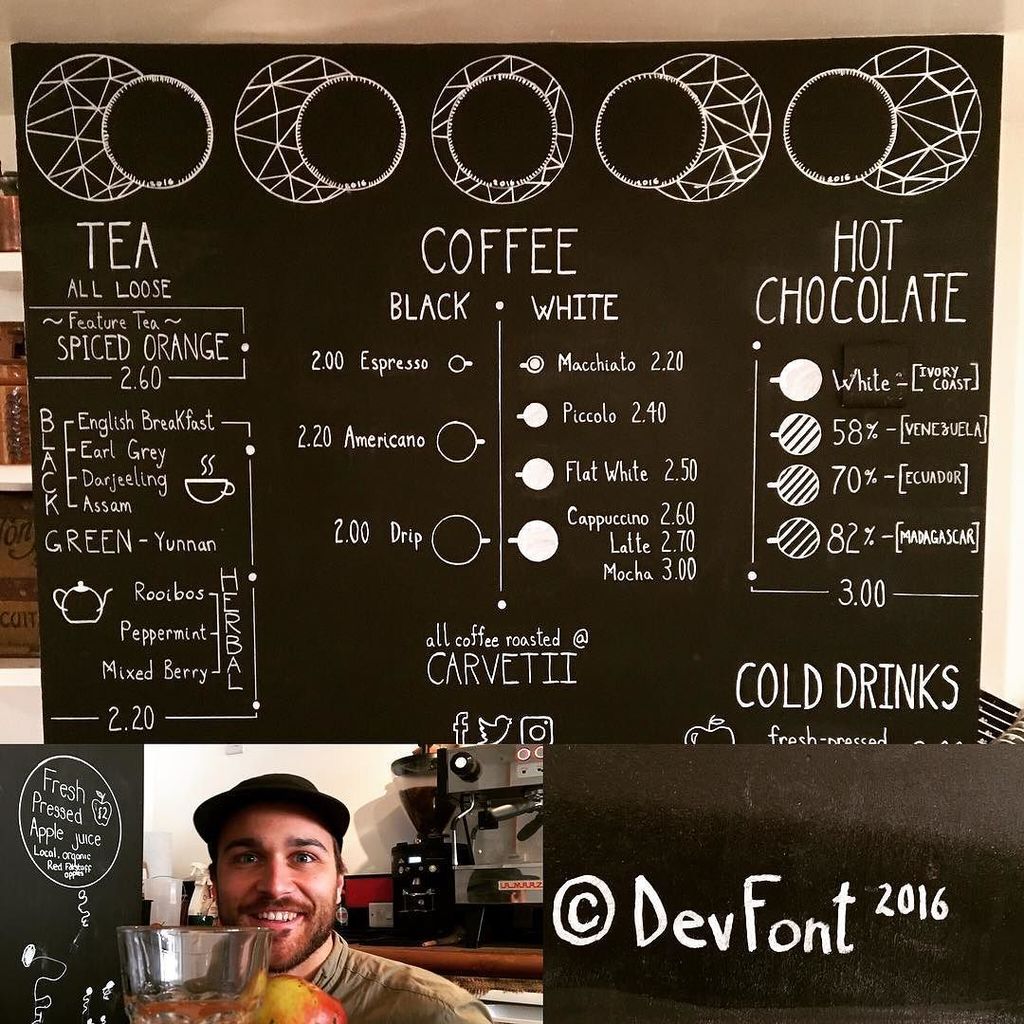 2016 2016 2016 2016 2016
TEA
ALL LOOSE
~ Feature Tea ~
SPICED ORANGE
2.60
BLACK
English Breakfast
Earl Grey
Darjeeling
Assam
GREEN - Yunnan
HERBAL
Rooibos
Peppermint
Mixed Berry
2.20
COFFEE
BLACK
WHITE
2.00 Espresso
Macchiato 2.20
Piccolo 2.40
2.20 Americano
Flat White 2.50
2.00 Drip
Cappuccino 2.60
Latte 2.70
Mocha 3.00
all coffee roasted @
CARVETII
HOT
CHOCOLATE
White - [IVORY
COAST]
58% - [VENEZUELA]
70% - [ECUADOR]
82% - [MADAGASCAR]
3.00
COLD DRINKS
fresh-pressed
Fresh
Pressed
Apple juice
£2
Local. organic
Red Falstaff
apples
© DevFont 2016